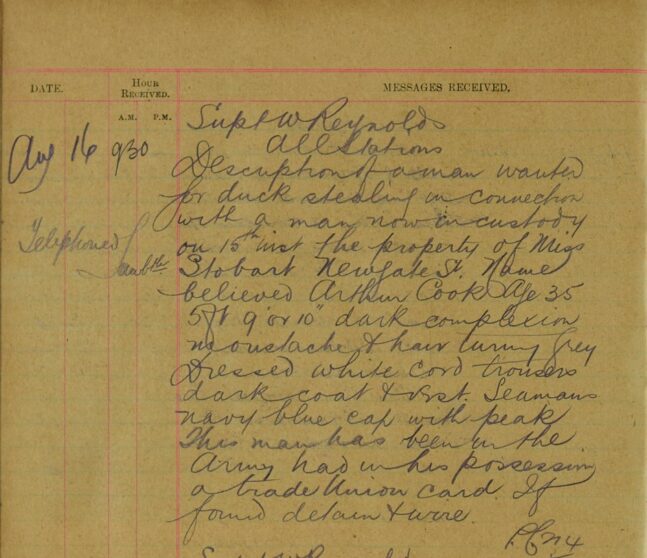 DATE.
HOUR RECEIVED.
MESSAGES RECEIVED.
A.M. P.M.
Supt W Reynolds
All Stations
Aug 16 930
Description of a man wanted
for duck stealing in connection
with a man now in custody
Telephoned
on 15th inst the property of Miss
Stobart Newgate St. Name
believed Arthur Cook Age 35
5ft 9 or 10" dark complexion
moustache & hair turning grey
Dressed white cord trousers
dark coat & vest. Seamans
navy blue cap with peak
This man has been in the
Army had in his possession
a trade Union card. If
found detain & wire.
Supt W Reynolds